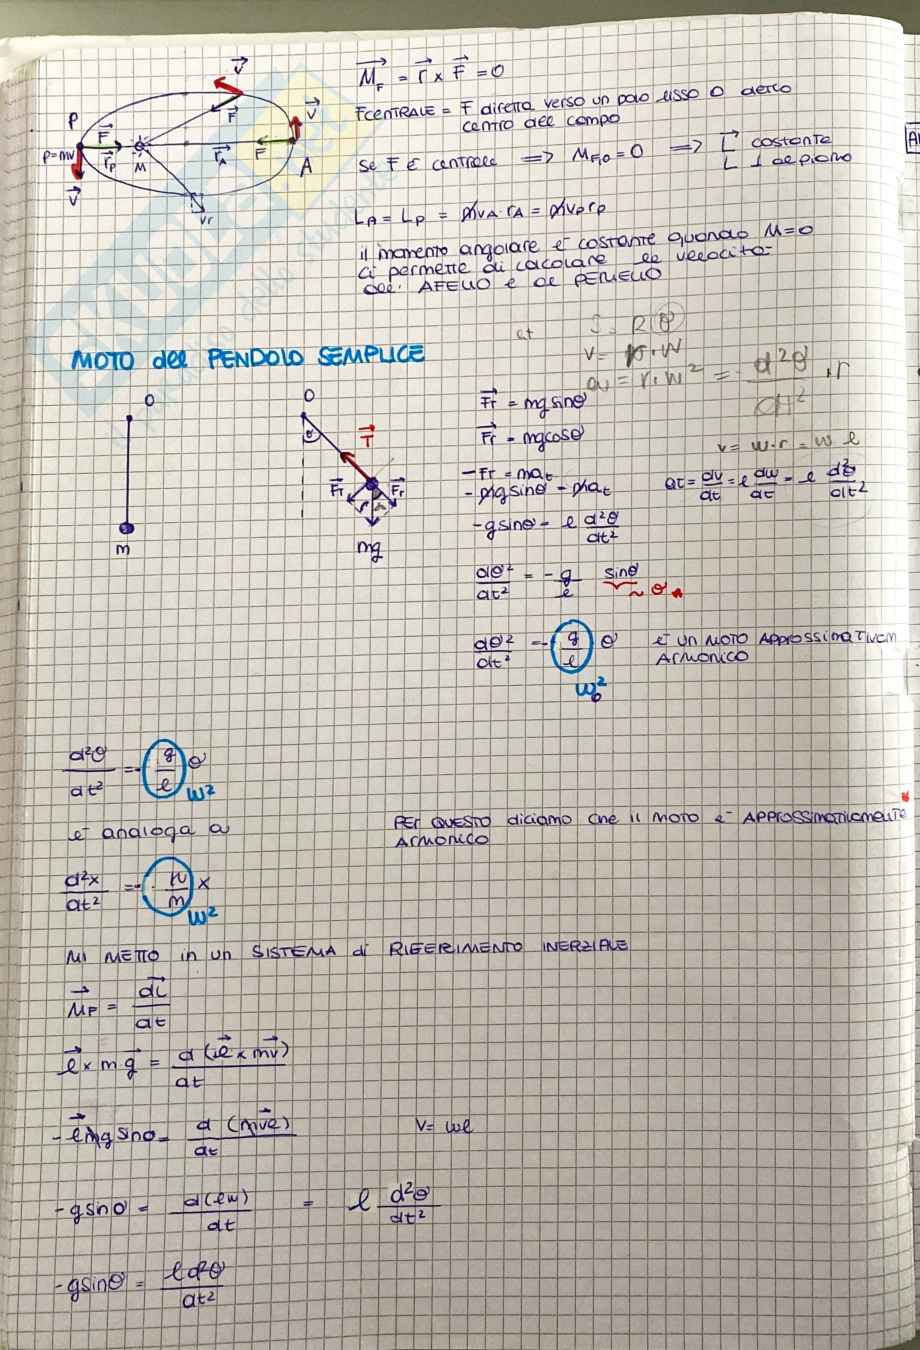 M_F = r × F = 0
FCENTRALE = F diretta verso un polo fisso O detto
centro del campo
Se F È centrale ⟹ M_F,O = 0 ⟹ L costante
L ⊥ al piano
V
P
F
V
F
P=mv
r_P
M
r_A
F
A
V
Vr
L_A = L_P = m v_A · r_A = m v_P r_P
il momento angolare è costante quando M=0
ci permette di calcolare le velocità
dell' AFELIO e del PERIELIO
S = R θ
v = r · w
a = r · w² = d²θ/dt² · r
MOTO del PENDOLO SEMPLICE
O
O
θ
T
F_T
F_r
m
mg
F_T = mg sinθ
F_r = mg cosθ
v = w·r = w l
-F_T = ma_t
-mg sinθ = ma_t
at = dv/dt = l dw/dt = l d²θ/dt²
-g sinθ = l d²θ/dt²
dθ²/dt² = - g/l sinθ
~ θ
dθ²/dt² = - g/l θ
È UN MOTO APPROSSIMATIVAM
ARMONICO
w₀²
d²θ/dt² = - g/l θ
w²
è analoga a
PER QUESTO diciamo che il MOTO è APPROSSIMATIVAMENTE
ARMONICO
d²x/dt² = - k/m x
w²
MI METTO in un SISTEMA di RIFERIMENTO INERZIALE
M_P = dL/dt
l × m g = d (l × mv)/dt
-l mg sinθ = d (mvl)/dt
v = wl
-g sinθ = d(lw)/dt = l d²θ/dt²
-g sinθ = l d²θ/dt²